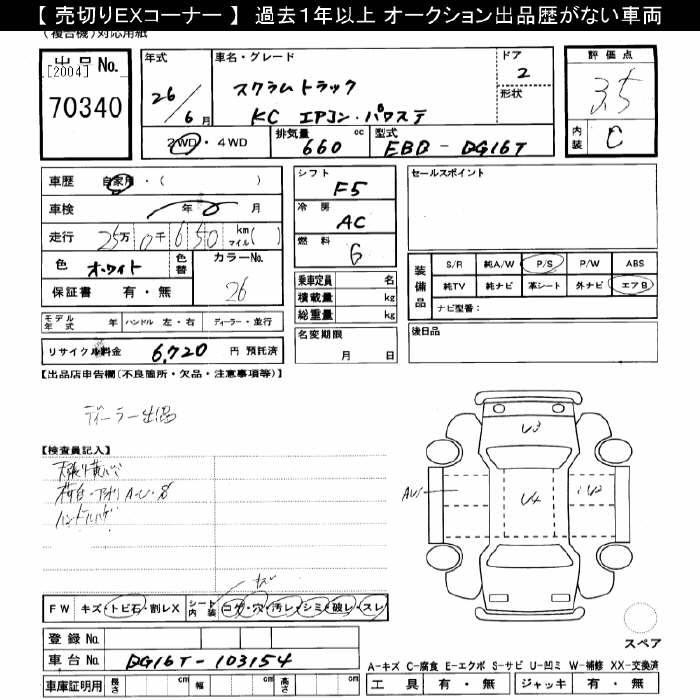 【 売切りEXコーナー 】 過去１年以上 オークション出品歴がない車両
(複合機)対応用紙
出品No.
[2004]
70340
年式
26/6月
車名・グレード
スクラムトラック
KC エアコン・パワステ
ドア
2
形状
評価点
3.5
内装
C
2WD・4WD
排気量
660 cc
型式
EBD-DG16T
車歴 自家用・( )
車検 年 月
走行 25万0千650 km マイル( )
色 オーワイト
色替
カラーNo.
26
保証書 有・無
モデル年式 年 ハンドル 左・右 ディーラー・並行
リサイクル料金 6,720 円 預託済
シフト
F5
冷房
AC
燃料
G
乗車定員 名
積載量 kg
総重量 kg
名変期限
月 日
セールスポイント
装備品
S/R 純A/W P/S P/W ABS
純TV 純ナビ 革シート 外ナビ エアB
ナビ型番:
後日品
【出品店申告欄(不良箇所・欠品・注意事項等)】
ディーラー出品
【検査員記入】
荷台・アオリ A・U・S
U3
AU1
U4
U2
FW キズ・トビ石・割レX
シート内装 コゲ・穴・汚レ・シミ・破レ・スレ
登録No.
車台No. DG16T-103154
車庫証明用 長さ cm 幅 cm 高さ cm
スペア
A-キズ C-腐食 E-エクボ S-サビ U-凹ミ W-補修 XX-交換済
工具 有・無 ジャッキ 有・無